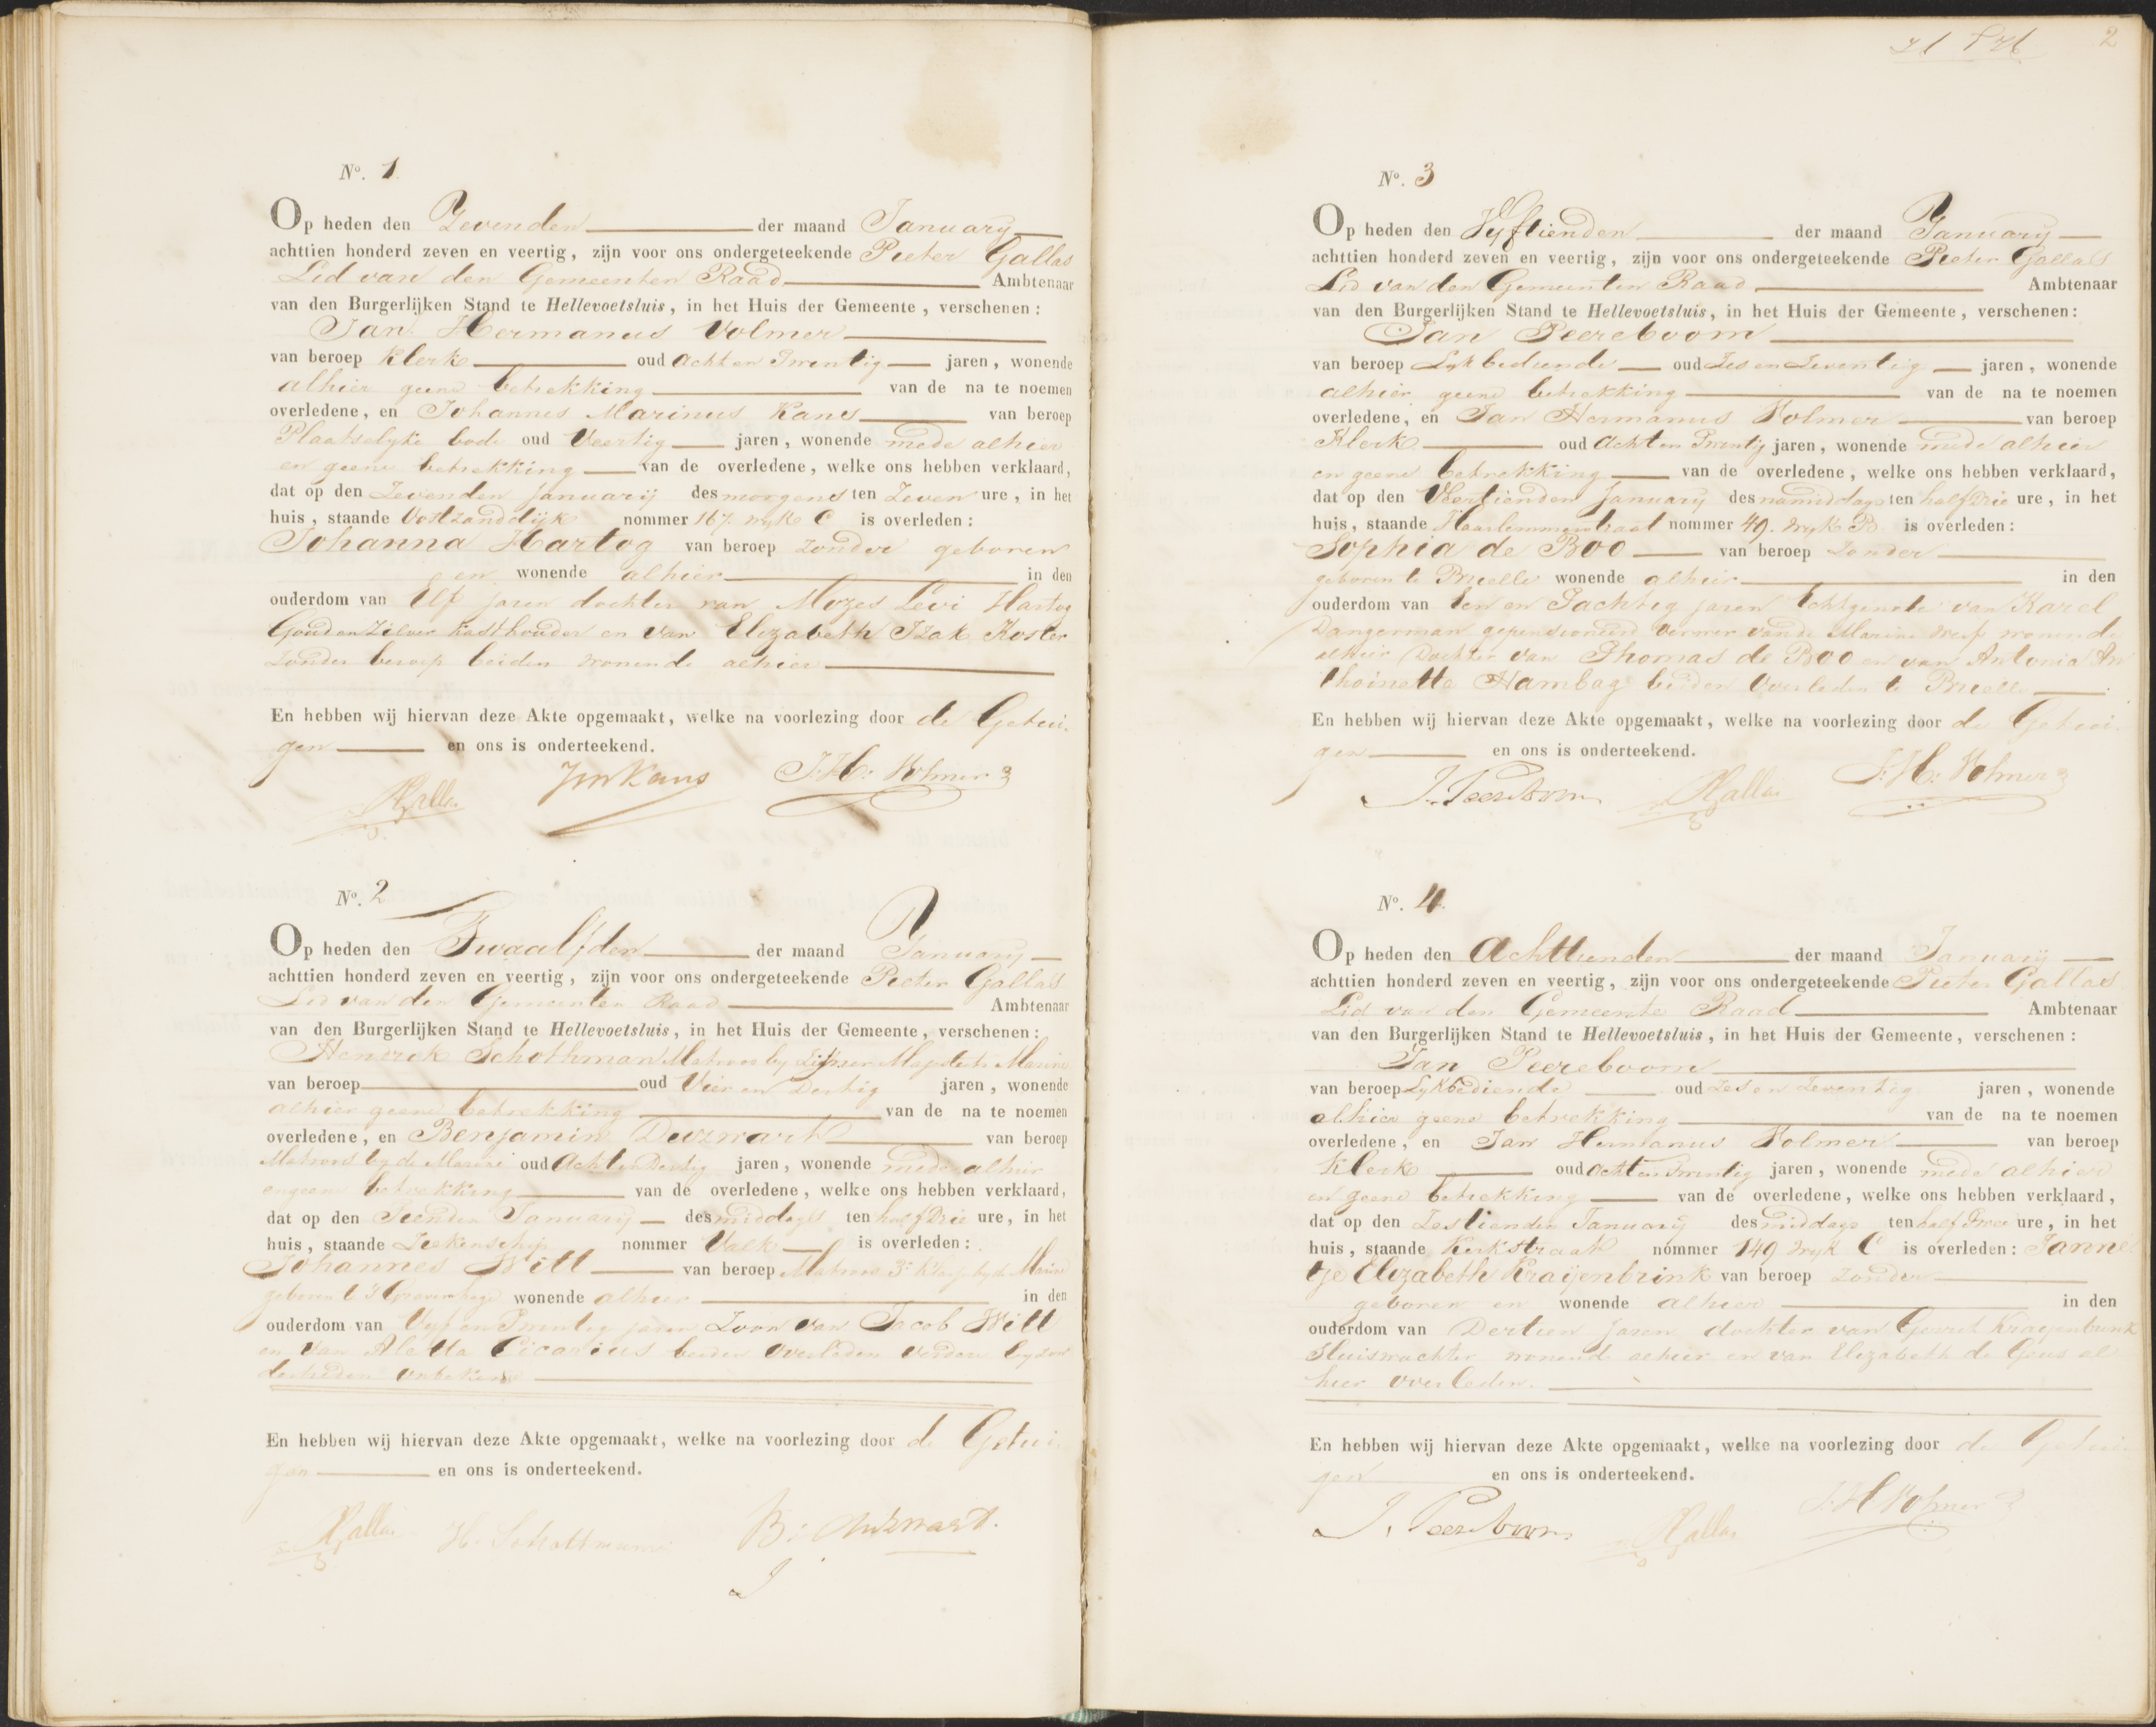 2
No. 1
Op heden den Zevenden der maand January
achttien honderd zeven en veertig, zijn voor ons ondergeteekende Pieter Gallas
Lid van den Gemeenten Raad Ambtenaar
van den Burgerlijken Stand te Hellevoetsluis, in het Huis der Gemeente, verschenen:
Jan Hermanus Volmer
van beroep Klerk oud Acht en Twentig jaren, wonende
alhier geene betrekking van de na te noemen
overledene, en Johannes Marinus Kans van beroep
Plaatselyke bode oud Veertig jaren, wonende mede alhier
en geene betrekking van de overledene, welke ons hebben verklaard,
dat op den Zevenden January des morgens ten Zeven ure, in het
huis, staande Oostzanddijk nommer 167 wyk C is overleden:
Johanna Hartog van beroep zonder geboren
en wonende alhier in den
ouderdom van Elf jaren dochter van Mozes Levi Hartog
Goud en Zilver Kasthouder en van Elizabeth Izak Koster
zonder beroep beiden wonende alhier
En hebben wij hiervan deze Akte opgemaakt, welke na voorlezing door de Getui-
gen en ons is onderteekend.
PGallas JM Kans J.H. Volmer
No. 2
Op heden den Twaalfden der maand January
achttien honderd zeven en veertig, zijn voor ons ondergeteekende Pieter Gallas
Lid van den Gemeenten Raad Ambtenaar
van den Burgerlijken Stand te Hellevoetsluis, in het Huis der Gemeente, verschenen:
Hendrik Schothman Matroos by Zijner Majesteits Marine
van beroep oud Vier en Dertig jaren, wonende
alhier geene betrekking van de na te noemen
overledene, en Benjamin van beroep
Matroos by de Marine oud Acht en Dertig jaren, wonende mede alhier
en geene betrekking van de overledene, welke ons hebben verklaard,
dat op den Tienden January des middags ten half Drie ure, in het
huis, staande Ziekenschip nommer Valk is overleden:
Johannes Will van beroep Matroos 3e Klasse by de Marine
geboren te 's Gravenhage wonende alhier in den
ouderdom van Vyf en Twentig jaren Zoon van Jacob Will
en van Aletta Cicarius beiden Overleden verdere byzon
derheden onbekend
En hebben wij hiervan deze Akte opgemaakt, welke na voorlezing door de Getui-
gen en ons is onderteekend.
PGallas H. Schottman B:
No. 3
Op heden den Vyftienden der maand January
achttien honderd zeven en veertig, zijn voor ons ondergeteekende Pieter Gallas
Lid van den Gemeenten Raad Ambtenaar
van den Burgerlijken Stand te Hellevoetsluis, in het Huis der Gemeente, verschenen:
Jan Peereboom
van beroep Lykbediende oud Zes en Zeventig jaren, wonende
alhier geene betrekking van de na te noemen
overledene, en Jan Hermanus Volmer van beroep
Klerk oud Acht en Twentig jaren, wonende mede alhier
en geene betrekking van de overledene, welke ons hebben verklaard,
dat op den Veertienden January des namiddags ten half Drie ure, in het
huis, staande Haarlemmerstraat nommer 49. Wyk B is overleden:
Sophia de Boo van beroep Zonder
geboren te Brielle wonende alhier in den
ouderdom van Een en Tachtig jaren Echtgenote van Karel
Dangerman gepensioneerd Verwer van de Marine Werf wonende
alhier Dochter van Thomas de Boo en van Antonia An
thoinetta Hambag beiden Overleden te Brielle
En hebben wij hiervan deze Akte opgemaakt, welke na voorlezing door de Getui-
gen en ons is onderteekend.
J. Peereboom PGallas J:H: Volmer
No. 4.
Op heden den Achttienden der maand January
achttien honderd zeven en veertig, zijn voor ons ondergeteekende Pieter Gallas
Lid van den Gemeente Raad Ambtenaar
van den Burgerlijken Stand te Hellevoetsluis, in het Huis der Gemeente, verschenen:
Jan Peereboom
van beroep Lykbediende oud Zes en Zeventig jaren, wonende
alhier geene betrekking van de na te noemen
overledene, en Jan Hermanus Volmer van beroep
Klerk oud Acht en Twentig jaren, wonende mede alhier
en geene betrekking van de overledene, welke ons hebben verklaard,
dat op den Zestienden January des middags ten half Twee ure, in het
huis, staande Kerkstraat nommer 149 Wyk C is overleden: Janne
tje Elizabeth Kraijenbrink van beroep zonder
geboren en wonende alhier in den
ouderdom van Dertien Jaren dochter van Gerrit Kraijenbrink
Sluiswachter wonend alhier en van Elizabeth de Geus al
hier overleden.
En hebben wij hiervan deze Akte opgemaakt, welke na voorlezing door de Getui-
gen en ons is onderteekend.
J. Peereboom PGallas J:H Volmer